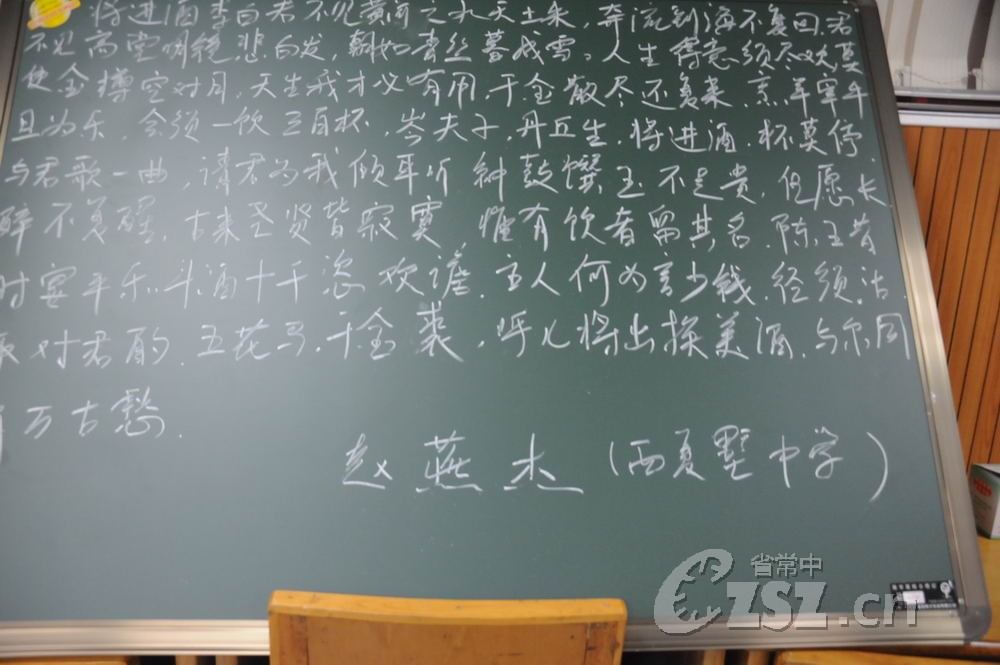 将进酒 李白 君不见黄河之水天上来，奔流到海不复回。君
不见高堂明镜悲白发，朝如青丝暮成雪。人生得意须尽欢，莫
使金樽空对月，天生我才必有用，千金散尽还复来，烹羊宰牛
且为乐，会须一饮三百杯，岑夫子，丹丘生，将进酒，杯莫停，
与君歌一曲，请君为我倾耳听 钟鼓馔玉不足贵，但愿长
醉不复醒，古来圣贤皆寂寞，惟有饮者留其名，陈王昔
时宴平乐，斗酒十千恣欢谑，主人何为言少钱，径须沽
取对君酌，五花马，千金裘，呼儿将出换美酒，与尔同
万古愁．
赵燕杰（西夏墅中学）
省常中
CZSZ.cn